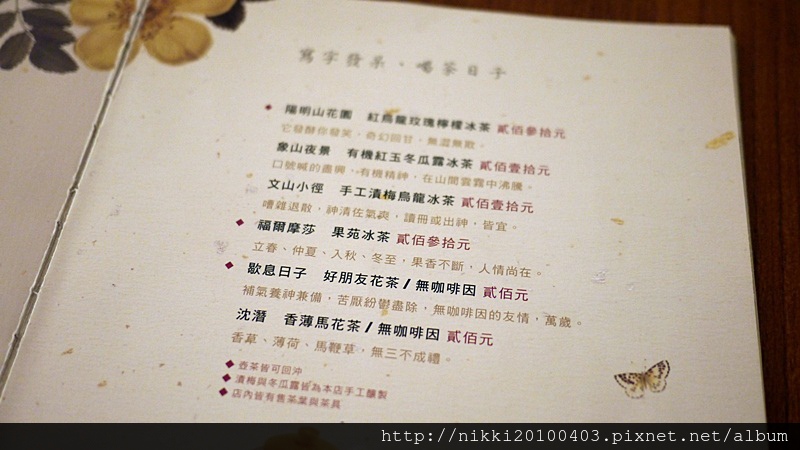 寫字發呆、喝茶日子
◆ 陽明山花園 紅烏龍玫瑰檸檬冰茶 貳佰參拾元
它發酵你發笑，奇幻回甘，無澀無敵。
象山夜景 有機紅玉冬瓜露冰茶 貳佰壹拾元
口號喊的盡興，有機精神，在山間雲霧中沸騰。
文山小徑 手工漬梅烏龍冰茶 貳佰壹拾元
嘈雜退散，神清佐氣爽，讀冊或出神，皆宜。
◆ 福爾摩莎 果苑冰茶 貳佰參拾元
立春、仲夏、入秋、冬至，果香不斷，人情尚在。
◆ 歇息日子 好朋友花茶 / 無咖啡因 貳佰元
補氣養神兼備，苦厭紛鬱盡除，無咖啡因的友情，萬歲。
沈潛 香薄馬花茶 / 無咖啡因 貳佰元
香草、薄荷、馬鞭草，無三不成禮。
◆ 壺茶皆可回沖
◆ 漬梅與冬瓜露皆為本店手工釀製
◆ 店內皆有售茶葉與茶具
http://nikki20100403.pixnet.net/album